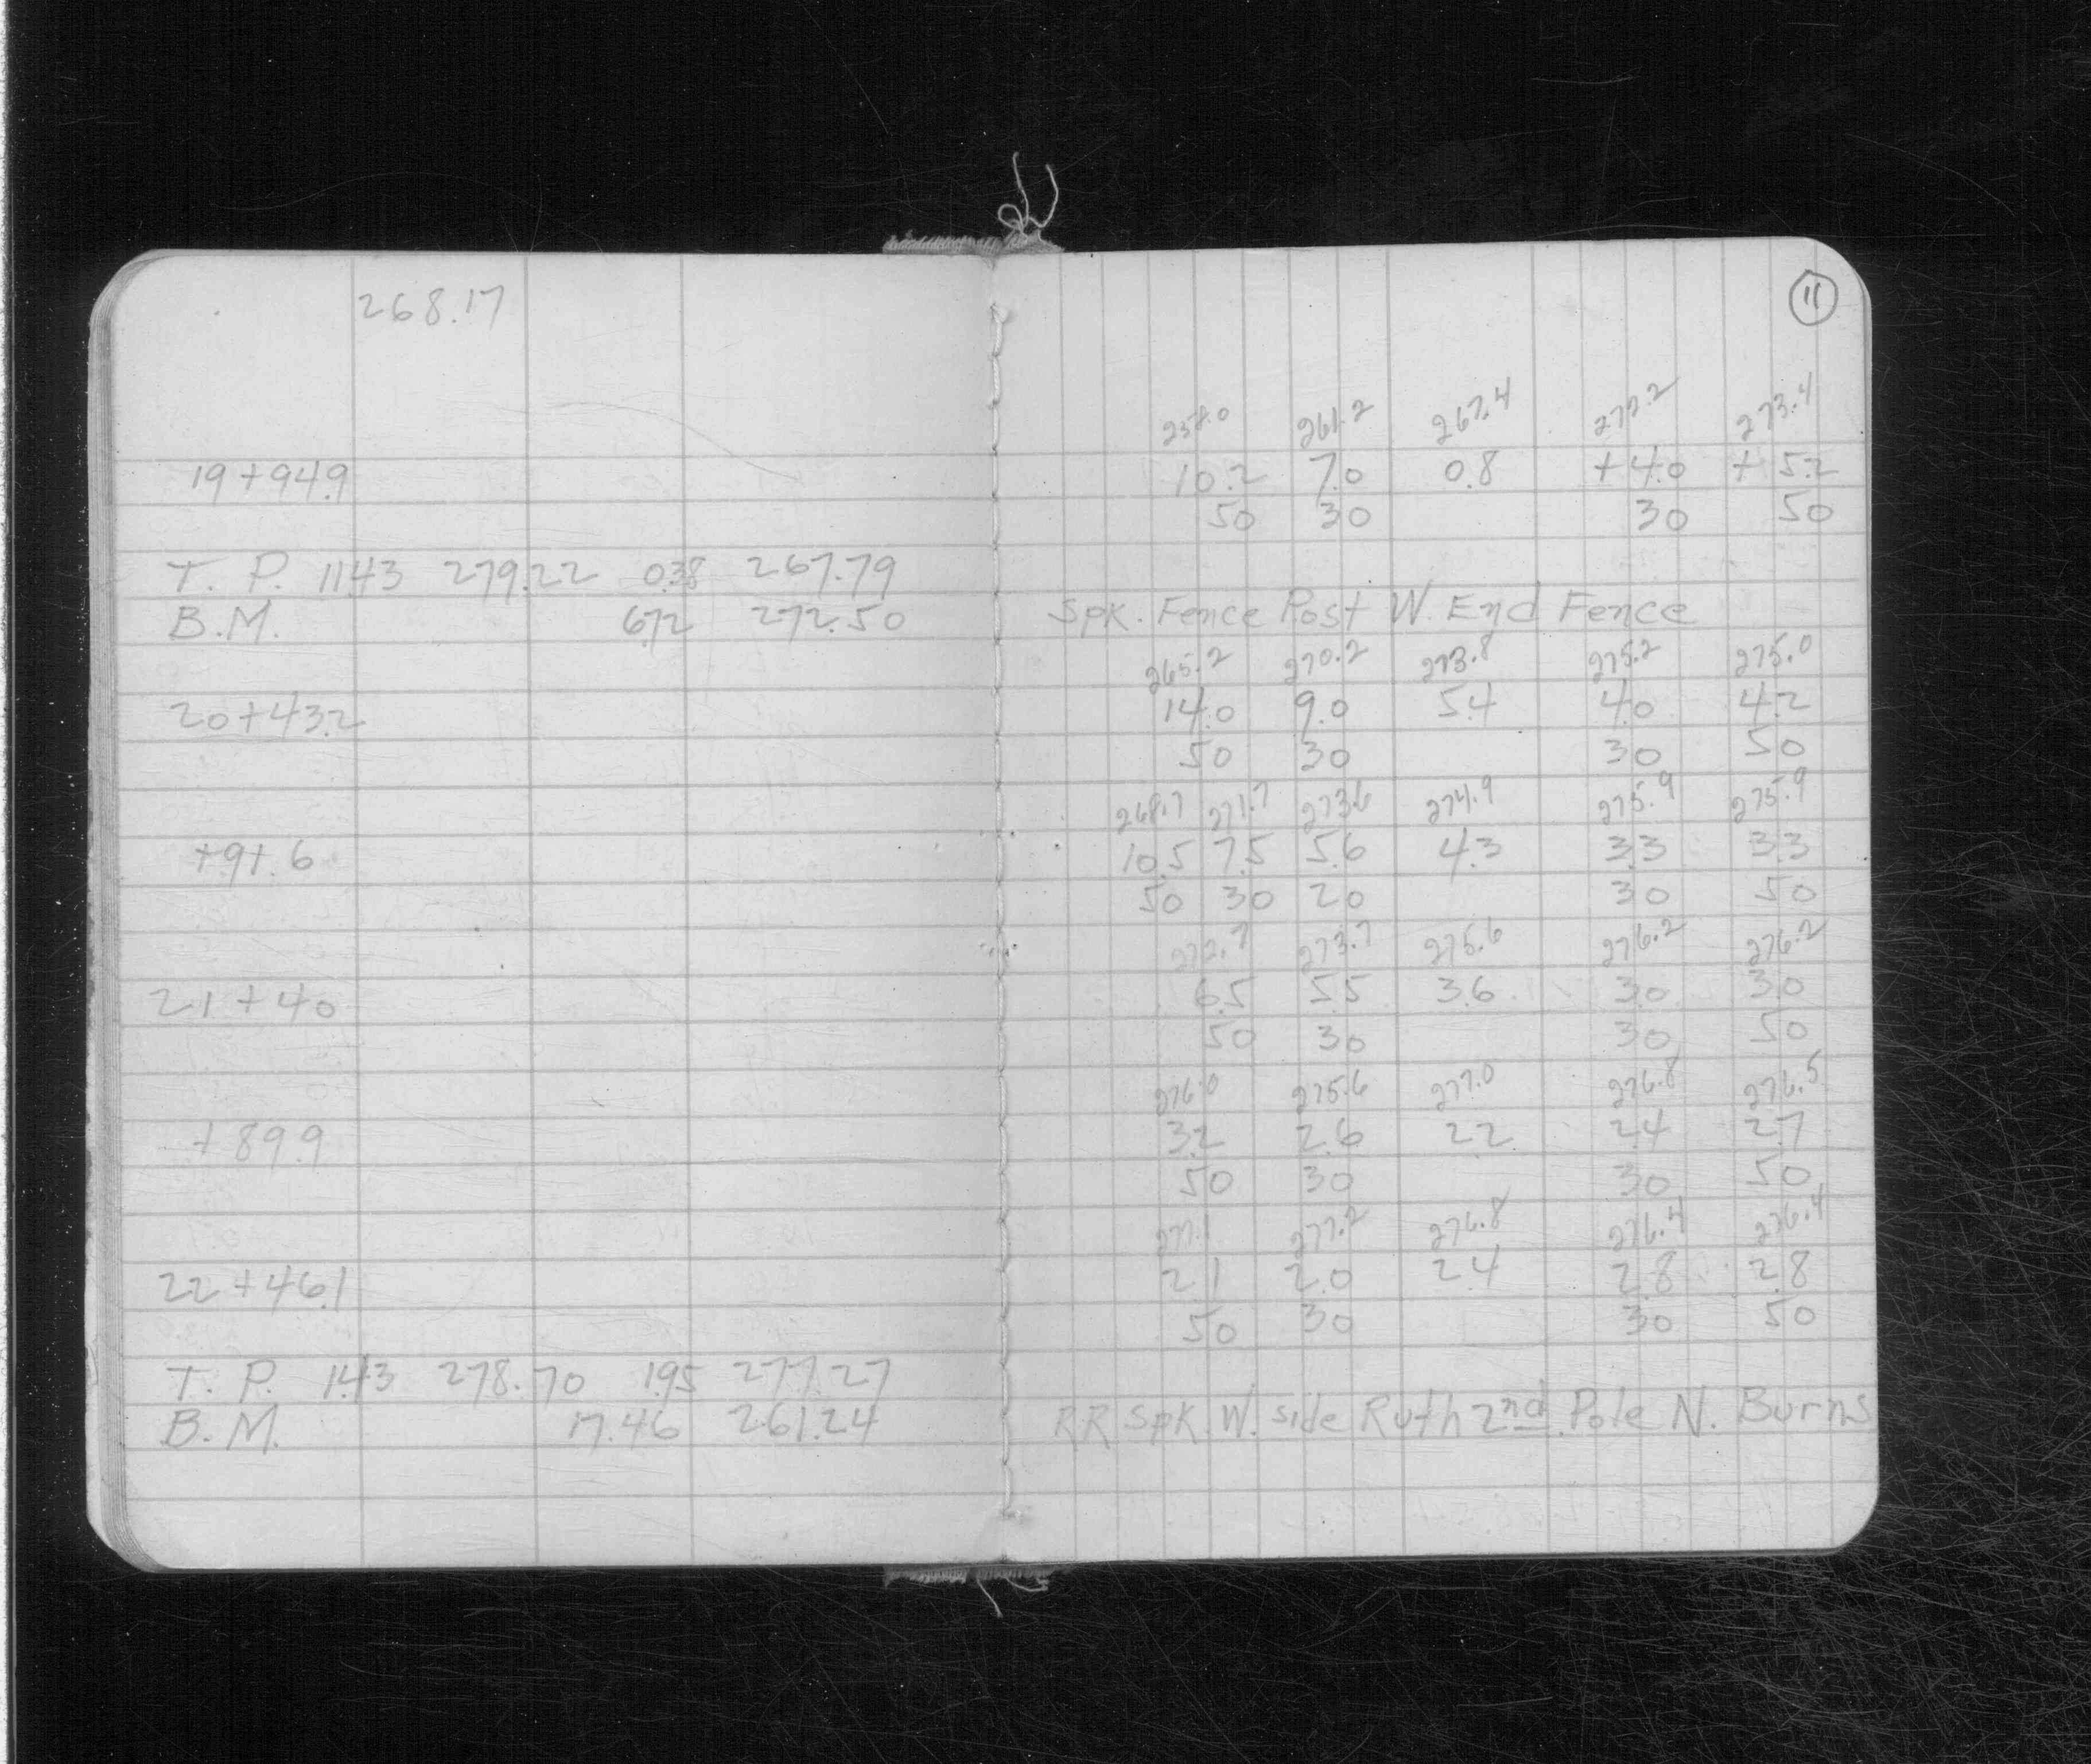 268.17
11
258.0 261.2 267.4 272.2 273.4
19+94.9 10.2 7.0 0.8 +4.0 +5.2
50 30 30 50
T. P. 11.43 279.22 0.38 267.79
B.M. 6.72 272.50 Spk. Fence Post W. End Fence
265.2 270.2 273.8 275.2 275.0
20+43.2 14.0 9.0 5.4 4.0 4.2
50 30 30 50
268.7 271.7 273.6 274.9 275.9 275.9
+91.6 10.5 7.5 5.6 4.3 3.3 3.3
50 30 20 30 50
272.7 273.7 275.6 276.2 276.2
21+40 6.5 5.5 3.6 3.0 3.0
50 30 30 50
276.0 275.6 277.0 276.8 276.5
+89.9 3.2 2.6 2.2 2.4 2.7
50 30 30 50
277.1 277.2 276.8 276.4 276.4
22+46.1 2.1 2.0 2.4 2.8 2.8
50 30 30 50
T. P. 1.43 278.70 1.95 277.27
B.M. 17.46 261.24 RR Spk. W. side Ruth 2nd. Pole N. Burns